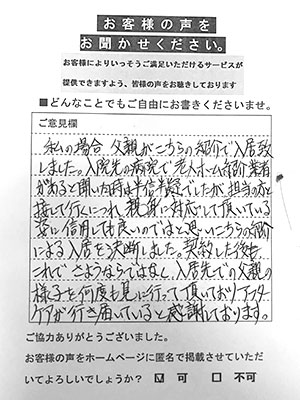 お客様の声を
お聞かせください。
お客様によりいっそうご満足いただけるサービスが
提供できますよう、皆様の声をお聴きしております
■どんなことでもご自由にお書きくださいませ。
ご意見欄
私の場合、父親がこちらの紹介で入居致
しました。入院先の病院で老人ホーム紹介業者
があると聞い内時は半信半疑でしたが、担当の方と
接して行くにつれ、親身に対応して頂いている
姿に信用しても良いのではと思いこちらの紹介
による入居を決断しました。契約した後も
これでさようならではなく、入居先での父親の
様子を何度も見に行って頂いておりアフター
ケアが行き届いていると感謝しております。
ご協力ありがとうございました。
お客様の声をホームページに匿名で掲載させていただ
いてよろしいでしょうか? ☑ 可 □ 不可